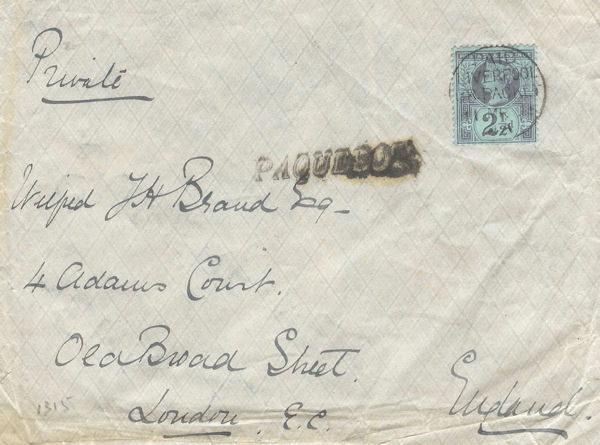 Private
PAID
LIVERPOOL
PAQ
2½d
PAQUEBOT
Wilfred JH Brand Esq-
4 Adams Court.
Old Broad Street.
London, E.C.
England.
1315